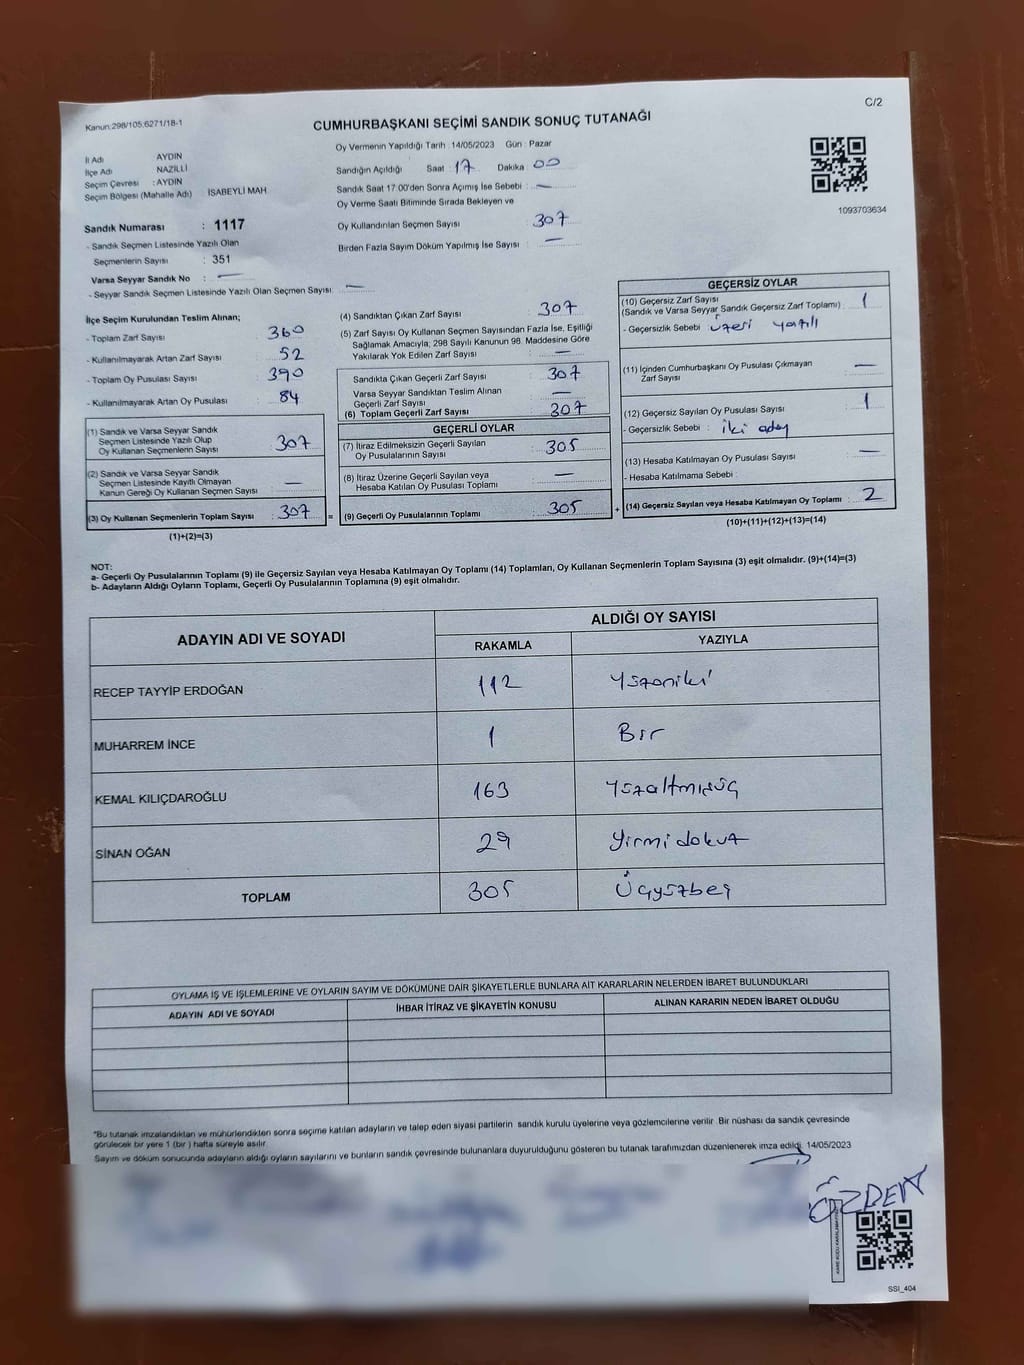 C/2
Kanun:298/105;6271/18-1
CUMHURBAŞKANI SEÇİMİ SANDIK SONUÇ TUTANAĞI
İl Adı AYDIN
İlçe Adı NAZİLLİ
Seçim Çevresi : AYDIN
Seçim Bölgesi (Mahalle Adı) İSABEYLİ MAH
Sandık Numarası : 1117
- Sandık Seçmen Listesinde Yazılı Olan
Seçmenlerin Sayısı : 351
Varsa Seyyar Sandık No : —
- Seyyar Sandık Seçmen Listesinde Yazılı Olan Seçmen Sayısı: —
Oy Vermenin Yapıldığı Tarih : 14/05/2023 Gün : Pazar
Sandığın Açıldığı Saat : 17 Dakika : 00
Sandık Saat 17.00'den Sonra Açımış İse Sebebi : —
Oy Verme Saati Bitiminde Sırada Bekleyen ve
Oy Kullandırılan Seçmen Sayısı : 307
Birden Fazla Sayım Döküm Yapılmış İse Sayısı : —
1093703634
İlçe Seçim Kurulundan Teslim Alınan;
- Toplam Zarf Sayısı : 360
- Kullanılmayarak Artan Zarf Sayısı : 52
- Toplam Oy Pusulası Sayısı : 390
- Kullanılmayarak Artan Oy Pusulası : 84
(1) Sandık ve Varsa Seyyar Sandık
Seçmen Listesinde Yazılı Olup
Oy Kullanan Seçmenlerin Sayısı : 307
(2) Sandık ve Varsa Seyyar Sandık
Seçmen Listesinde Kayıtlı Olmayan
Kanun Gereği Oy Kullanan Seçmen Sayısı : —
(3) Oy Kullanan Seçmenlerin Toplam Sayısı : 307 =
(1)+(2)=(3)
(4) Sandıktan Çıkan Zarf Sayısı : 307
(5) Zarf Sayısı Oy Kullanan Seçmen Sayısından Fazla İse, Eşitliği
Sağlamak Amacıyla; 298 Sayılı Kanunun 98. Maddesine Göre
Yakılarak Yok Edilen Zarf Sayısı : —
Sandıkta Çıkan Geçerli Zarf Sayısı : 307
Varsa Seyyar Sandıktan Teslim Alınan
Geçerli Zarf Sayısı : —
(6) Toplam Geçerli Zarf Sayısı : 307
GEÇERLİ OYLAR
(7) İtiraz Edilmeksizin Geçerli Sayılan
Oy Pusulalarının Sayısı : 305
(8) İtiraz Üzerine Geçerli Sayılan veya
Hesaba Katılan Oy Pusulası Toplamı : —
(9) Geçerli Oy Pusulalarının Toplamı : 305 +
GEÇERSİZ OYLAR
(10) Geçersiz Zarf Sayısı
(Sandık ve Varsa Seyyar Sandık Geçersiz Zarf Toplamı) : 1
- Geçersizlik Sebebi : üzeri yazılı
(11) İçinden Cumhurbaşkanı Oy Pusulası Çıkmayan
Zarf Sayısı : —
(12) Geçersiz Sayılan Oy Pusulası Sayısı : 1
- Geçersizlik Sebebi : iki aday
(13) Hesaba Katılmayan Oy Pusulası Sayısı : —
- Hesaba Katılmama Sebebi :
(14) Geçersiz Sayılan veya Hesaba Katılmayan Oy Toplamı : 2
(10)+(11)+(12)+(13)=(14)
NOT:
a- Geçerli Oy Pusulalarının Toplamı (9) ile Geçersiz Sayılan veya Hesaba Katılmayan Oy Toplamı (14) Toplamları, Oy Kullanan Seçmenlerin Toplam Sayısına (3) eşit olmalıdır. (9)+(14)=(3)
b- Adayların Aldığı Oyların Toplamı, Geçerli Oy Pusulalarının Toplamına (9) eşit olmalıdır.
ADAYIN ADI VE SOYADI ALDIĞI OY SAYISI
RAKAMLA YAZIYLA
RECEP TAYYİP ERDOĞAN 112 Yüzoniki
MUHARREM İNCE 1 Bir
KEMAL KILIÇDAROĞLU 163 Yüzaltmışüç
SİNAN OĞAN 29 Yirmidokuz
TOPLAM 305 Üçyüzbeş
OYLAMA İŞ VE İŞLEMLERİNE VE OYLARIN SAYIM VE DÖKÜMÜNE DAİR ŞİKAYETLERLE BUNLARA AİT KARARLARIN NELERDEN İBARET BULUNDUKLARI
ADAYIN ADI VE SOYADI İHBAR İTİRAZ VE ŞİKAYETİN KONUSU ALINAN KARARIN NEDEN İBARET OLDUĞU
"Bu tutanak imzalandıktan ve mühürlendikten sonra seçime katılan adayların ve talep eden siyasi partilerin sandık kurulu üyelerine veya gözlemcilerine verilir. Bir nüshası da sandık çevresinde
görülecek bir yere 1 (bir ) hafta süreyle asılır.
Sayım ve döküm sonucunda adayların aldığı oyların sayılarını ve bunların sandık çevresinde bulunanlara duyurulduğunu gösteren bu tutanak tarafımızdan düzenlenerek imza edildi. 14/05/2023
ÖZDEN
SSI_404